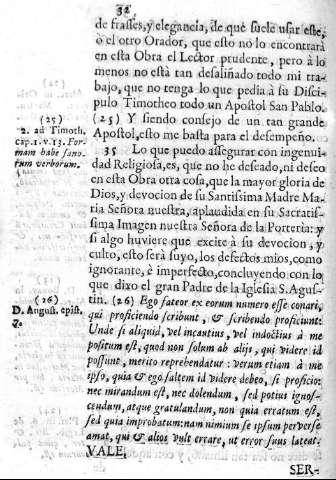 32
de frasses, y elegancia, de que suele usar este,
ò el otro Orador, que esto no lo encontrarà
en esta Obra el Lector prudente, pero à lo
menos no està tan desaliñado todo mi tra-
bajo, que no tenga lo que pedia à su Disci-
pulo Timotheo todo un Apostol San Pablo.
(25) Y siendo consejo de un tan grande
Apostol, esto me basta para el desempeño.
35 Lo que puedo assegurar con ingenui-
dad Religiosa, es, que no he deseado, ni deseo
en esta Obra otra cosa, que la mayor gloria de
Dios, y devocion de su Santissima Madre Ma-
ria Señora nuestra, aplaudida en su Sacratis-
sima Imagen nuestra Señora de la Porteria: y
si algo huviere que excite à su devocion, y
culto, esto serà suyo, los defectos mios, como
ignorante, è imperfecto, concluyendo con lo
que dixo el gran Padre de la Iglesia S. Agus-
tin. (26) Ego fateor ex eorum numero esse conari,
qui proficiendo scribunt, & scribendo proficiunt:
Unde si aliquid, vel incautius, vel indoctius à me
positum est, quod non solum ab alijs, qui videre id
possunt, merito reprehendatur: verum etiam à me
ipso, quia & ego saltem id videre debeo, si proficio:
nec mirandum est, nec dolendum, sed potius ignos-
cendum, atque gratulandum, non quia erratum est,
sed quia improbatum: nam nimium se ipsum perverse
amat, qui & alios vult errare, ut error suus lateat.
VALE.
SER-
(25)
2. ad Timoth.
cap. 1. v. 13. For-
mam habe sano-
rum verborum.
(26)
D. August. epist.
7.